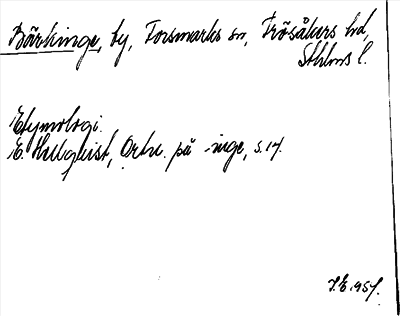 Börkinge, by, Forsmarks sn, Frösåkers hd,
Sthlms l.
Etymologi.
E. Hellquist, Ortn. på -inge, s. 17.
1951.